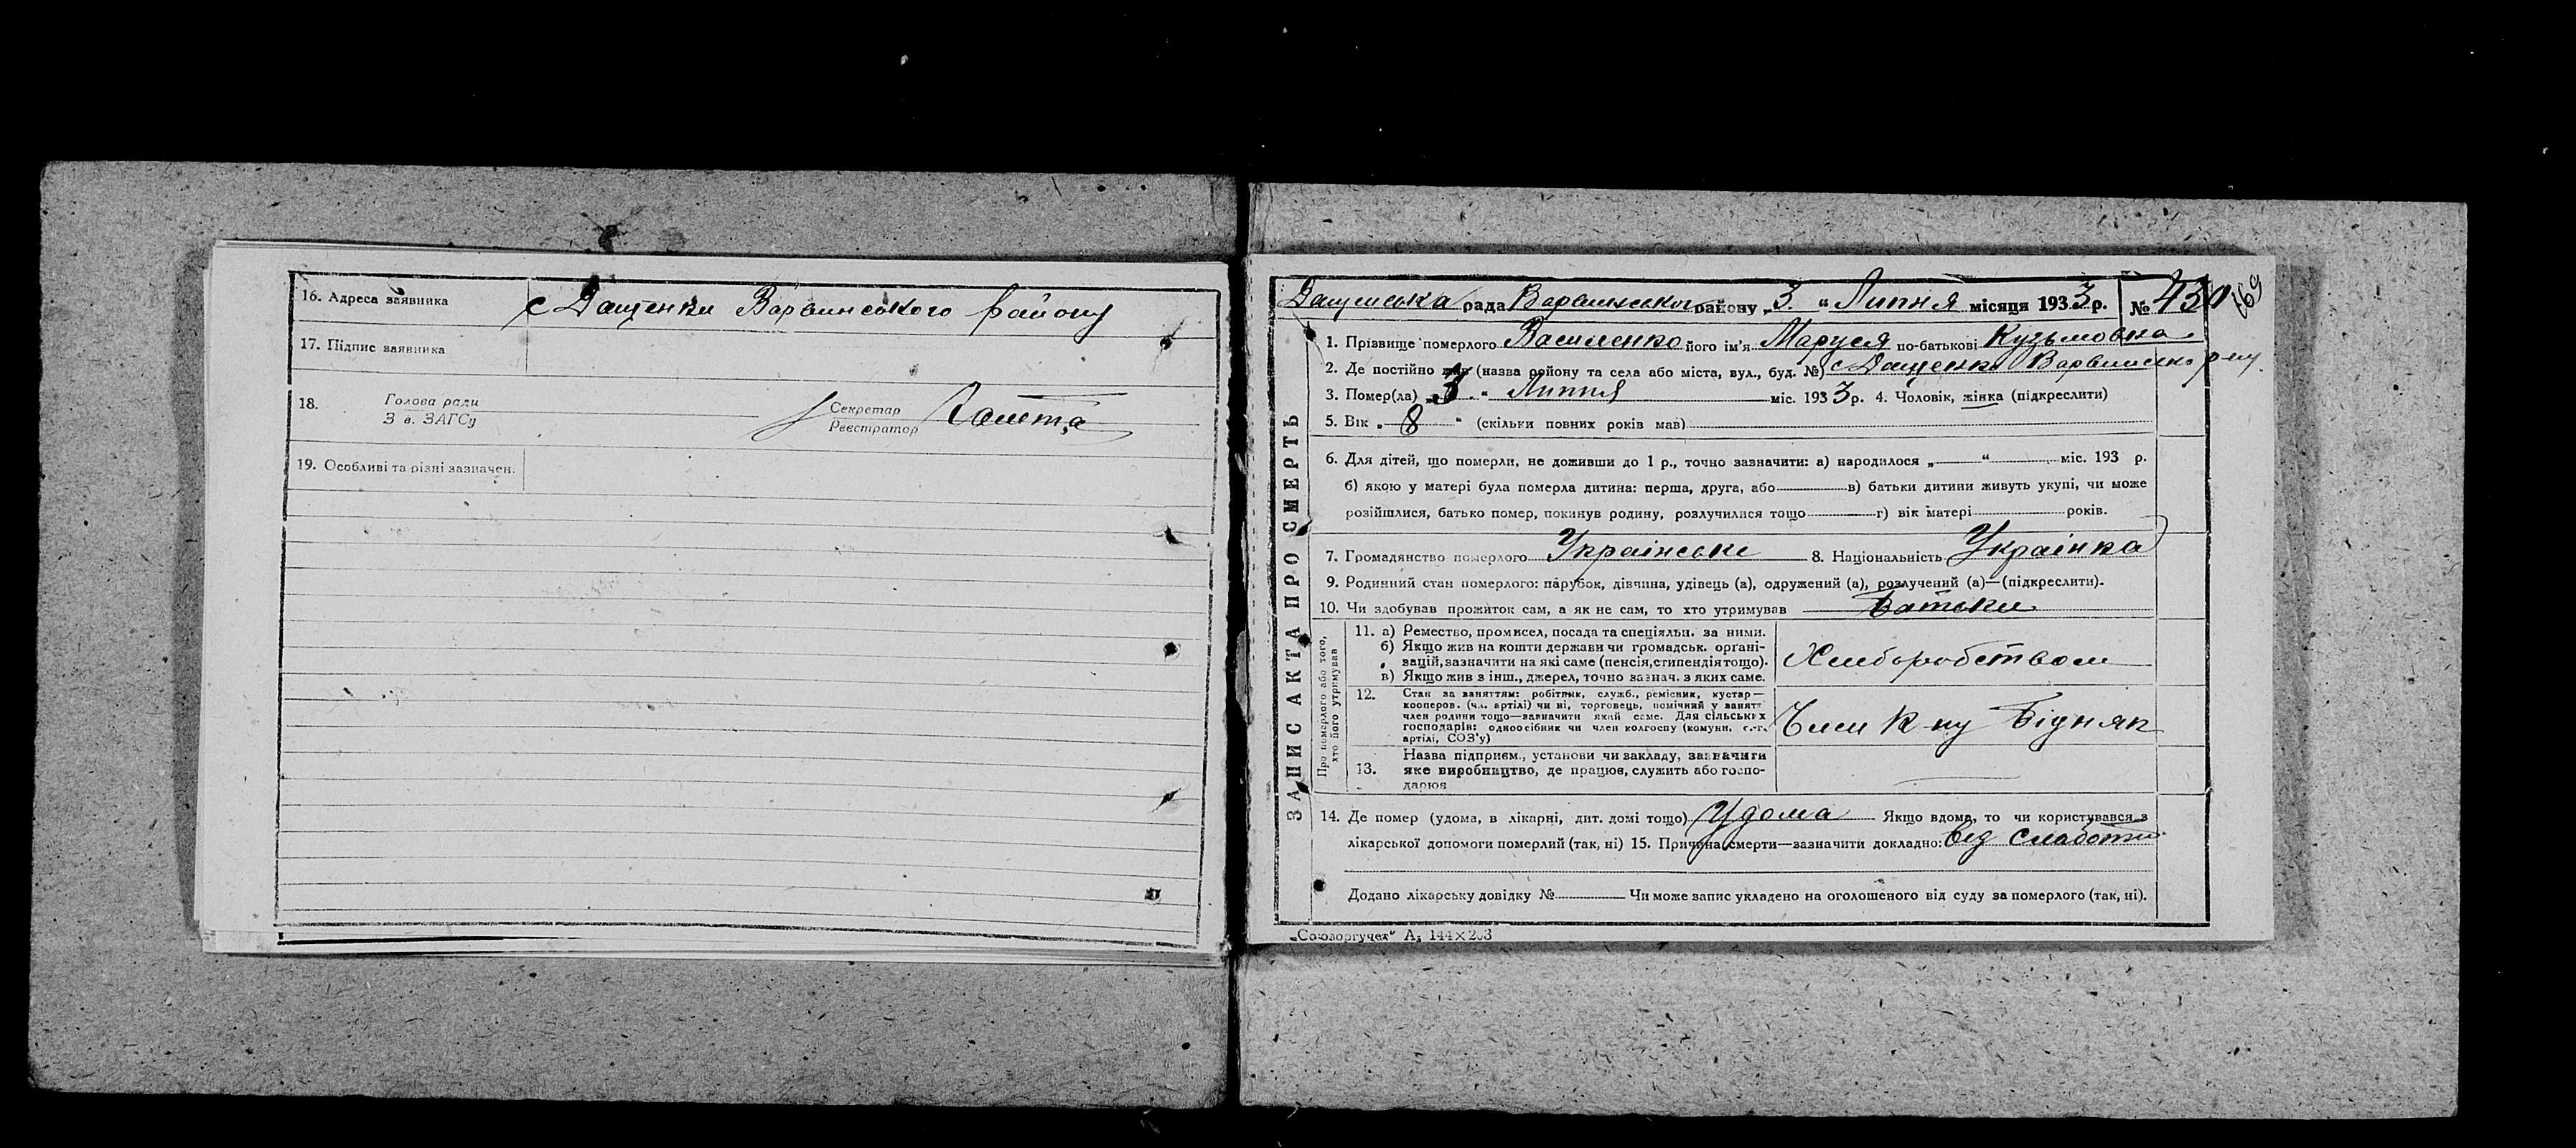 16. Адреса заявника с Дащенки Варвинського району
17. Підпис заявника
18. Голова ради Секретар
З в. ЗАГСу Реєстратор
19. Особливі та різні зазначен.
169
Дащенська рада Варвинського району „3 “ Липня місяця 1933 р. № 430
ЗАПИС АКТА ПРО СМЕРТЬ
1. Прізвище померлого Василенко його ім'я Маруся по-батькові Кузьмовна
2. Де постійно жив (назва району та села або міста, вул., буд. №) с Дащенки Варвинско р-ну
3. Помер(ла) „3 “ Липня міс. 1933 р. 4. Чоловік, жінка (підкреслити)
5. Вік „ 8 “ (скільки повних років мав)
6. Для дітей, що померли, не доживши до 1 р., точно зазначити: а) народилося „ “ міс. 193 р.
б) якою у матері була померла дитина: перша, друга, або в) батьки дитини живуть укупі, чи може
розійшлися, батько помер, покинув родину, розлучилися тощо г) вік матері років.
7. Громадянство померлого Українське 8. Національність Українка
9. Родинний стан померлого: парубок, дівчина, удівець (а), одружений (а), розлучений (а)—(підкреслити).
10. Чи здобував прожиток сам, а як не сам, то хто утримував Батьки
Про померлого або того,
хто його утримував
11. а) Ремество, промисел, посада та спеціяльн. за ними.
б) Якщо жив на кошти держави чи громадськ. організацій, зазначити на які саме (пенсія, стипендія тощо).
в) Якщо жив з інш., джерел, точно зазнач. з яких саме.
Хліборобством
12. Стан за заняттям: робітник, служб., ремісник, кустар—
кооперов. (чл. артілі) чи ні, торговець, помічний у занятт
член родини тощо—зазначити який саме. Для сільських
господарів: одноосібник чи член колгоспу (комуни, с.-г.
артілі, СОЗ'у)
Член К-пу Бідняк
13. Назва підприєм., установи чи закладу, зазначити
яке виробництво, де працює, служить або господарює
14. Де помер (удома, в лікарні, дит. домі тощо) Удома Якщо вдома, то чи користувався з
лікарської допомоги померлий (так, ні) 15. Причина смерти—зазначити докладно: від слаботи
Додано лікарську довідку № Чи може запис укладено на оголошеного від суду за померлого (так, ні).
„Союзоргучет“ А₅ 144×203